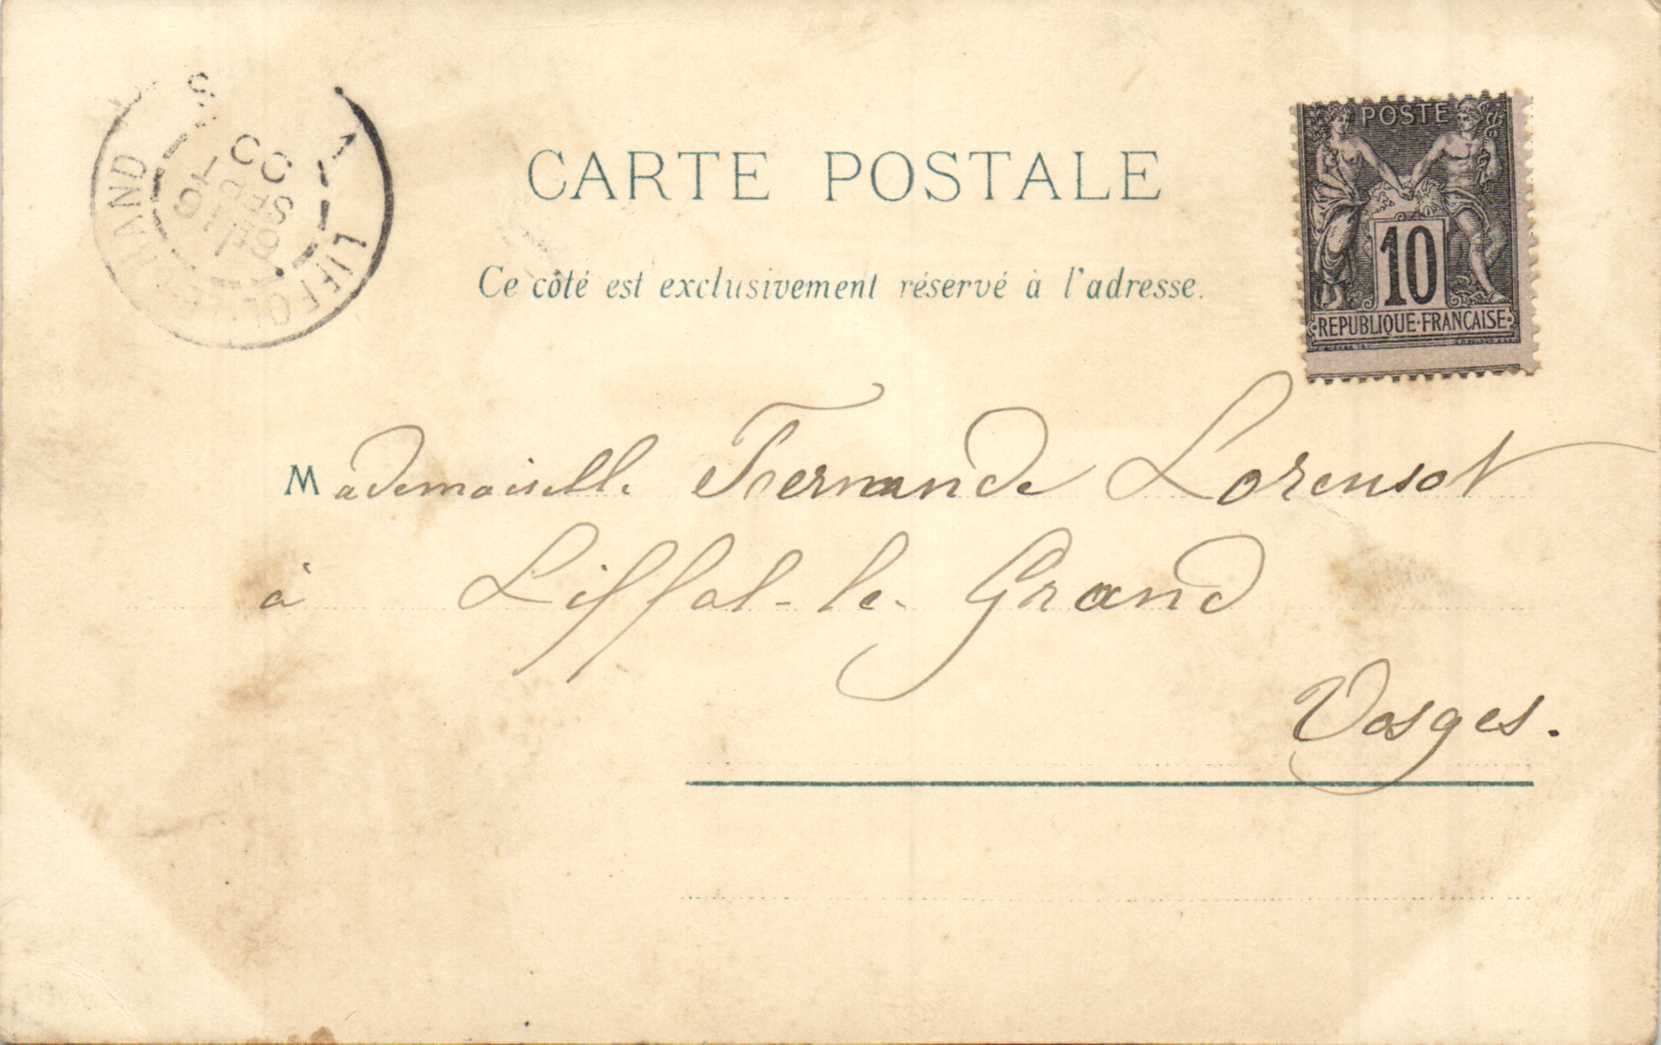 CARTE POSTALE
Ce côté est exclusivement réservé à l'adresse.
POSTE
10
REPUBLIQUE FRANCAISE
LIFFOL GRAND
SEPT
Mademoiselle Fernande Lorensot
à Liffol-le-Grand
Vosges.